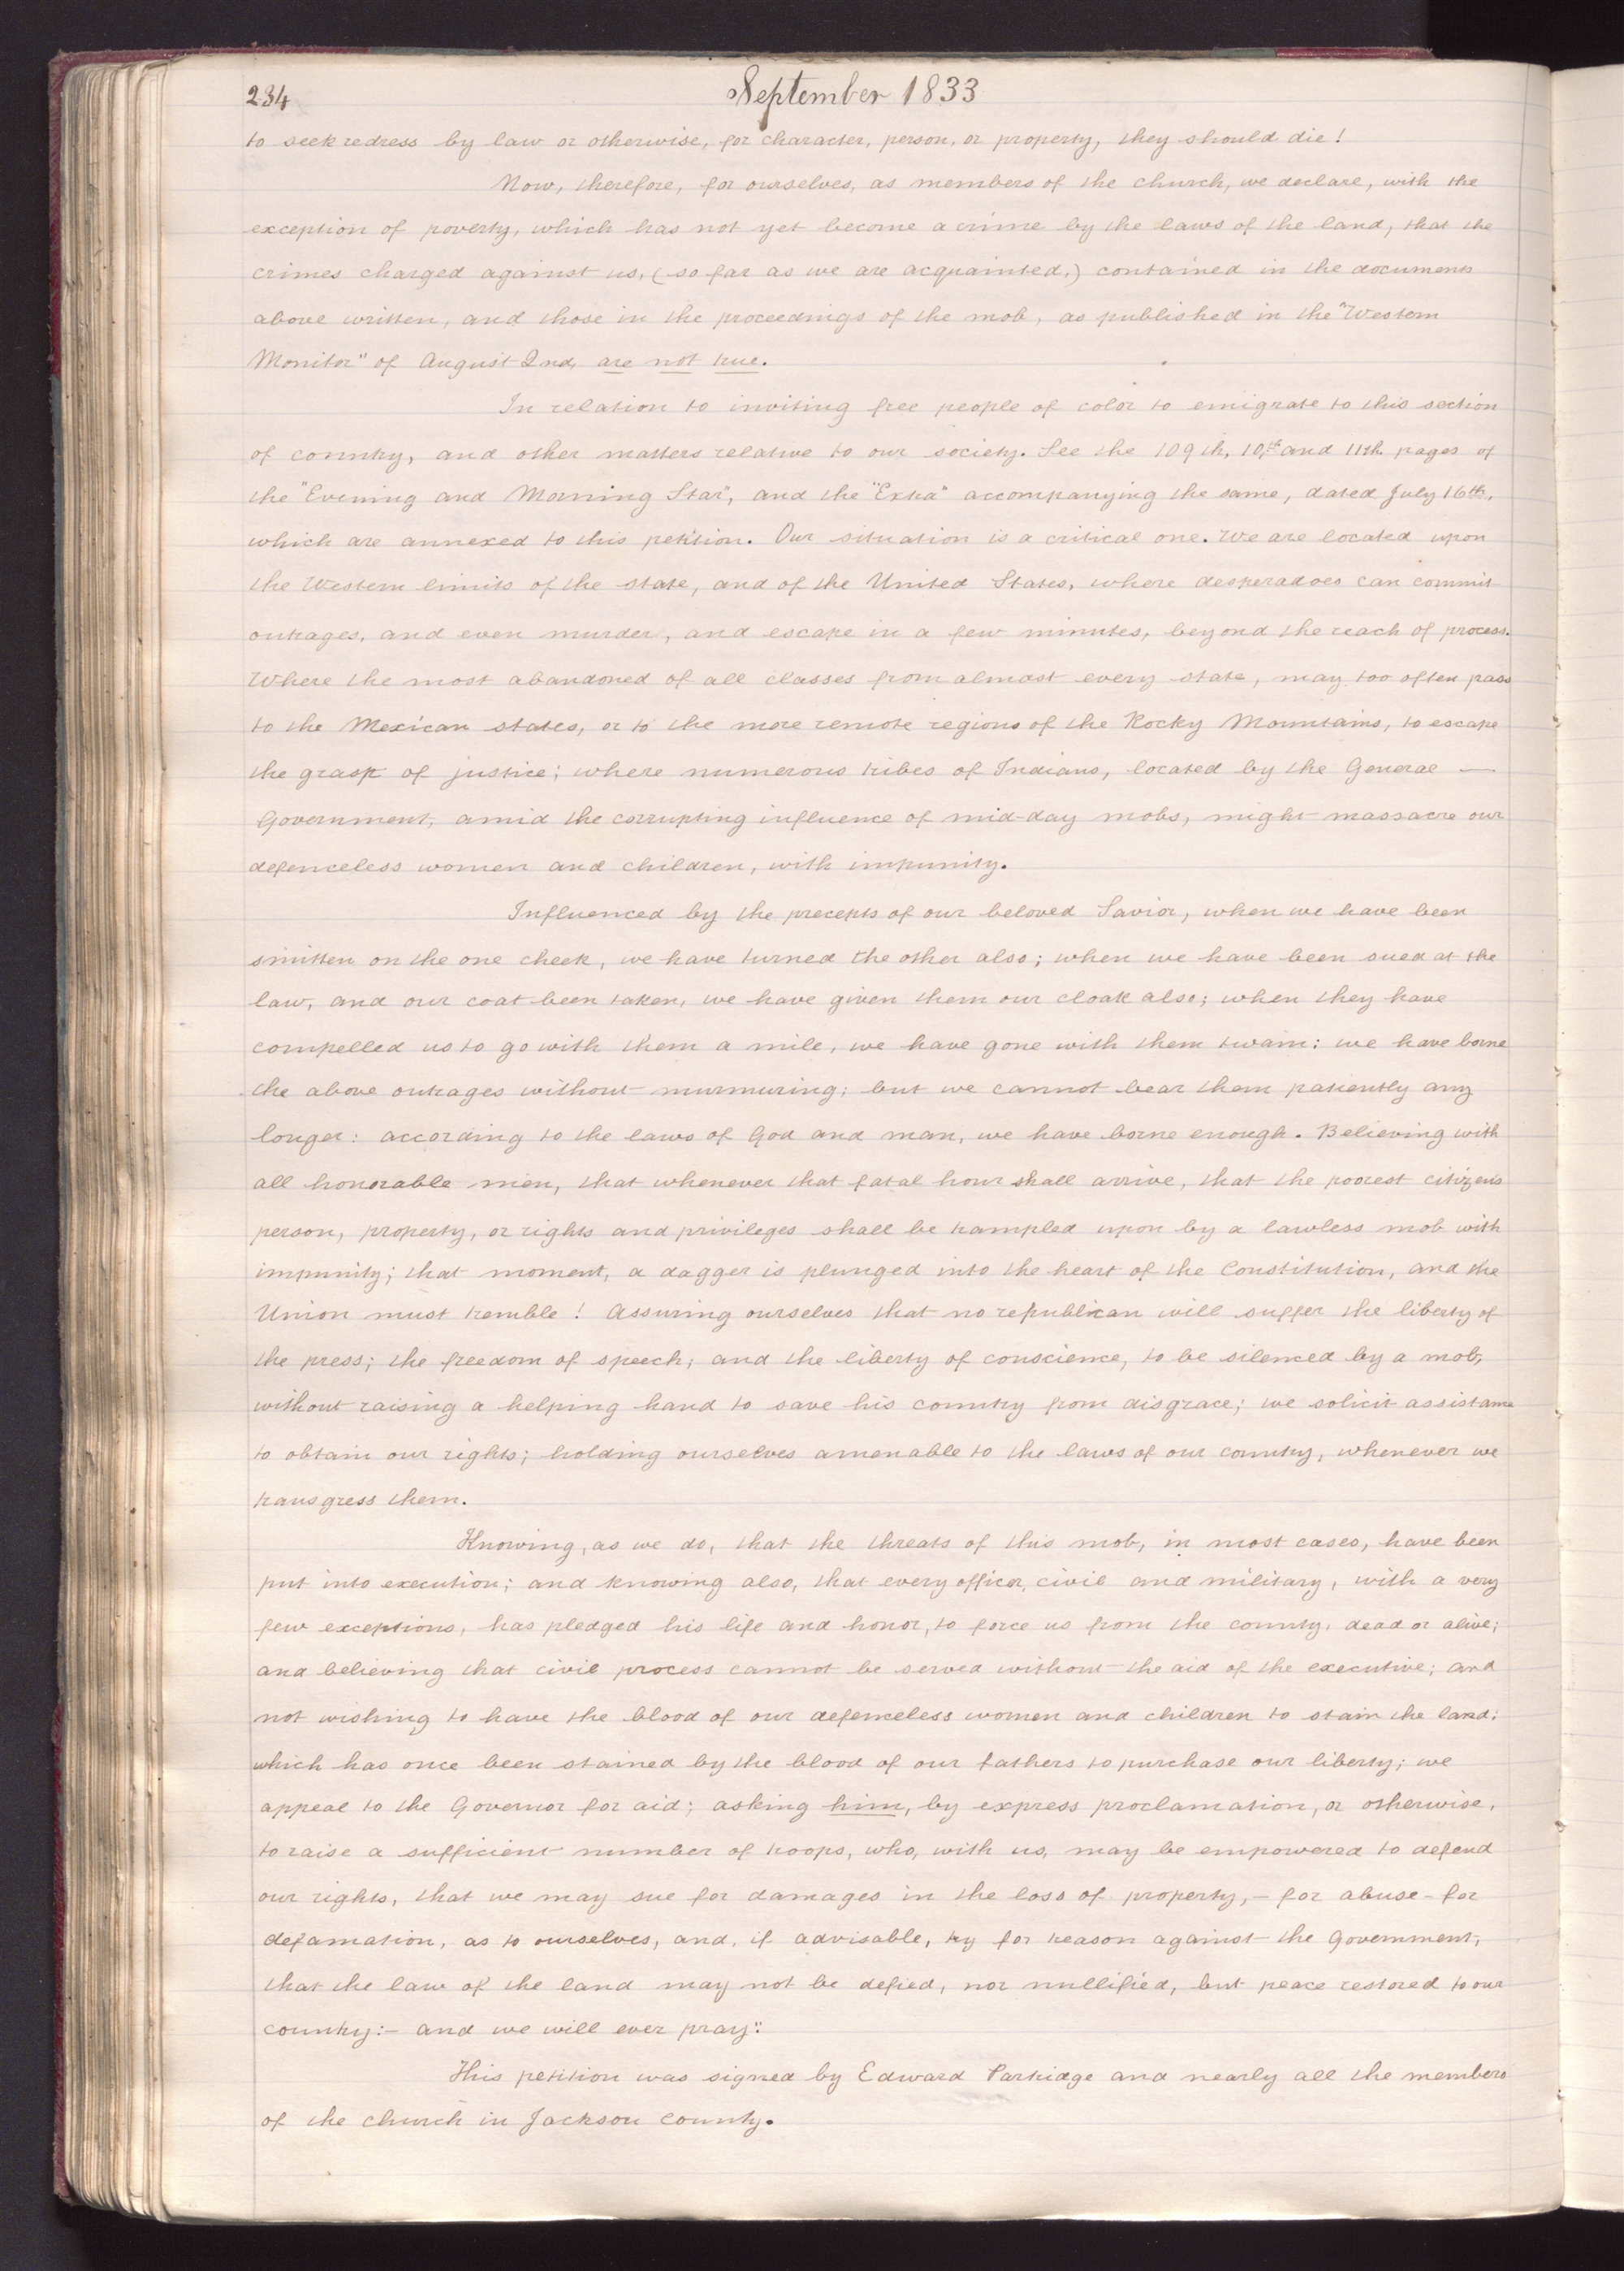 234
September 1833
to seek redress by law or otherwise, for character, person, or property, they should die!
Now, therefore, for ourselves, as members of the church, we declare, with the
exception of poverty, which has not yet become a crime by the laws of the land, that the
crimes charged against us, (so far as we are acquainted,) contained in the documents
above written, and those in the proceedings of the mob, as published in the "Western
Monitor" of August 2nd, are not true.
In relation to inviting free people of color to emigrate to this section
of country, and other matters relative to our society. See the 109th, 10th and 11th pages of
the "Evening and Morning Star", and the "Extra" accompanying the same, dated July 16th,
which are annexed to this petition. Our situation is a critical one. We are located upon
the Western limits of the state, and of the United States, where desperadoes can commit
outrages, and even murder, and escape in a few minutes, beyond the reach of process.
Where the most abandoned of all classes from almost every state, may too often pass
to the Mexican states, or to the more remote regions of the Rocky Mountains, to escape
the grasp of justice; where numerous tribes of Indians, located by the General —
Government, amid the corrupting influence of mid-day mobs, might massacre our
defenceless women and children, with impunity.
Influenced by the precepts of our beloved Savior, when we have been
smitten on the one cheek, we have turned the other also; when we have been sued at the
law, and our coat been taken, we have given them our cloak also; when they have
compelled us to go with them a mile, we have gone with them twain: we have borne
the above outrages without murmuring; but we cannot bear them patiently any
longer: according to the laws of God and man, we have borne enough. Believing with
all honorable men, that whenever that fatal hour shall arrive, that the poorest citizen's
person, property, or rights and privileges shall be trampled upon by a lawless mob with
impunity; that moment, a dagger is plunged into the heart of the Constitution, and the
Union must tremble! Assuring ourselves that no republican will suffer the liberty of
the press; the freedom of speech; and the liberty of conscience, to be silenced by a mob,
without raising a helping hand to save his country from disgrace; we solicit assistance
to obtain our rights; holding ourselves amenable to the laws of our country, whenever we
transgress them.
Knowing, as we do, that the threats of this mob, in most cases, have been
put into execution; and knowing also, that every officer, civil and military, with a very
few exceptions, has pledged his life and honor, to force us from the county, dead or alive;
and believing that civil process cannot be served without the aid of the executive; and
not wishing to have the blood of our defenceless women and children to stain the land;
which has once been stained by the blood of our fathers to purchase our liberty; we
appeal to the Governor for aid; asking him, by express proclamation, or otherwise,
to raise a sufficient number of troops, who, with us, may be empowered to defend
our rights, that we may sue for damages in the loss of property, – for abuse – for
defamation, as to ourselves, and, if advisable, try for treason against the government,
that the law of the land may not be defied, nor nullified, but peace restored to our
country:– and we will ever pray."
This petition was signed by Edward Partridge and nearly all the members
of the church in Jackson County.